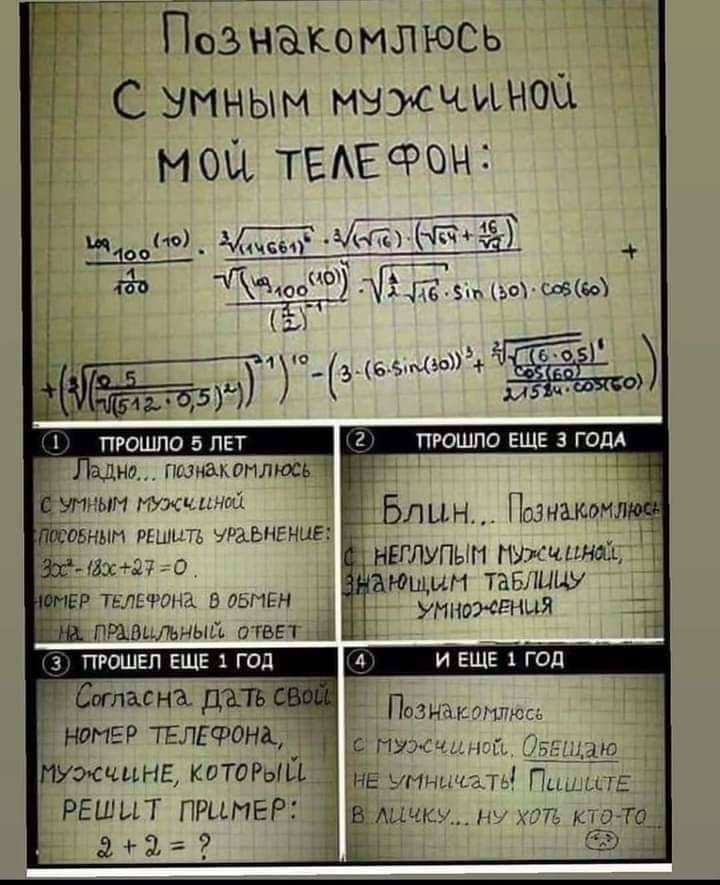 Познакомлюсь
С умным мужчиной
мой телефон:
① ПРОШЛО 5 ЛЕТ
Ладно... познакомлюсь
с умным мужчиной
способным решить уравнение:
3x²-18x+27=0.
номер телефона в обмен
на правильный ответ
② ПРОШЛО ЕЩЕ 3 ГОДА
Блин... Познакомлюсь
с неглупым мужчиной,
знающим таблицу
умножения
③ ПРОШЕЛ ЕЩЕ 1 ГОД
Согласна дать свой
номер телефона,
мужчине, который
решит пример:
2 + 2 = ?
④ И ЕЩЕ 1 ГОД
Познакомлюсь
с мужчиной. Обещаю
не умничать! Пишите
в личку... ну хоть кто-то